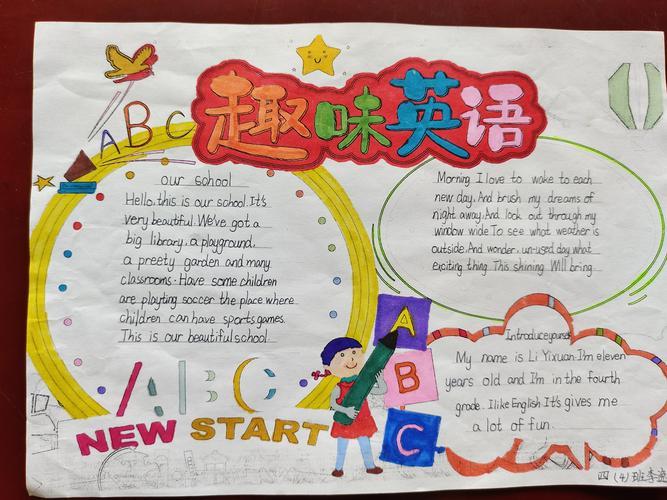 趣味英语
ABC
our school
Hello, this is our school. It's
very beautiful. We've got a
big library, a playground,
a preety garden and many
classrooms. Have some children
are playting soccer the place where
children can have sports games.
This is our beautiful school.
Morning I love to wake to each
new day, And brush my dreams of
night away. And look out through my
window wide. To see what weather is
outside. And wonder, un-used day what
exciting thing This shining Will bring
ABC
NEW START
A
B
C
Introduce yourself
My name is Li Yixuan. I'm eleven
years old and I'm in the fourth
grade. I like English. It's gives me
a lot of fun.
四(4)班李